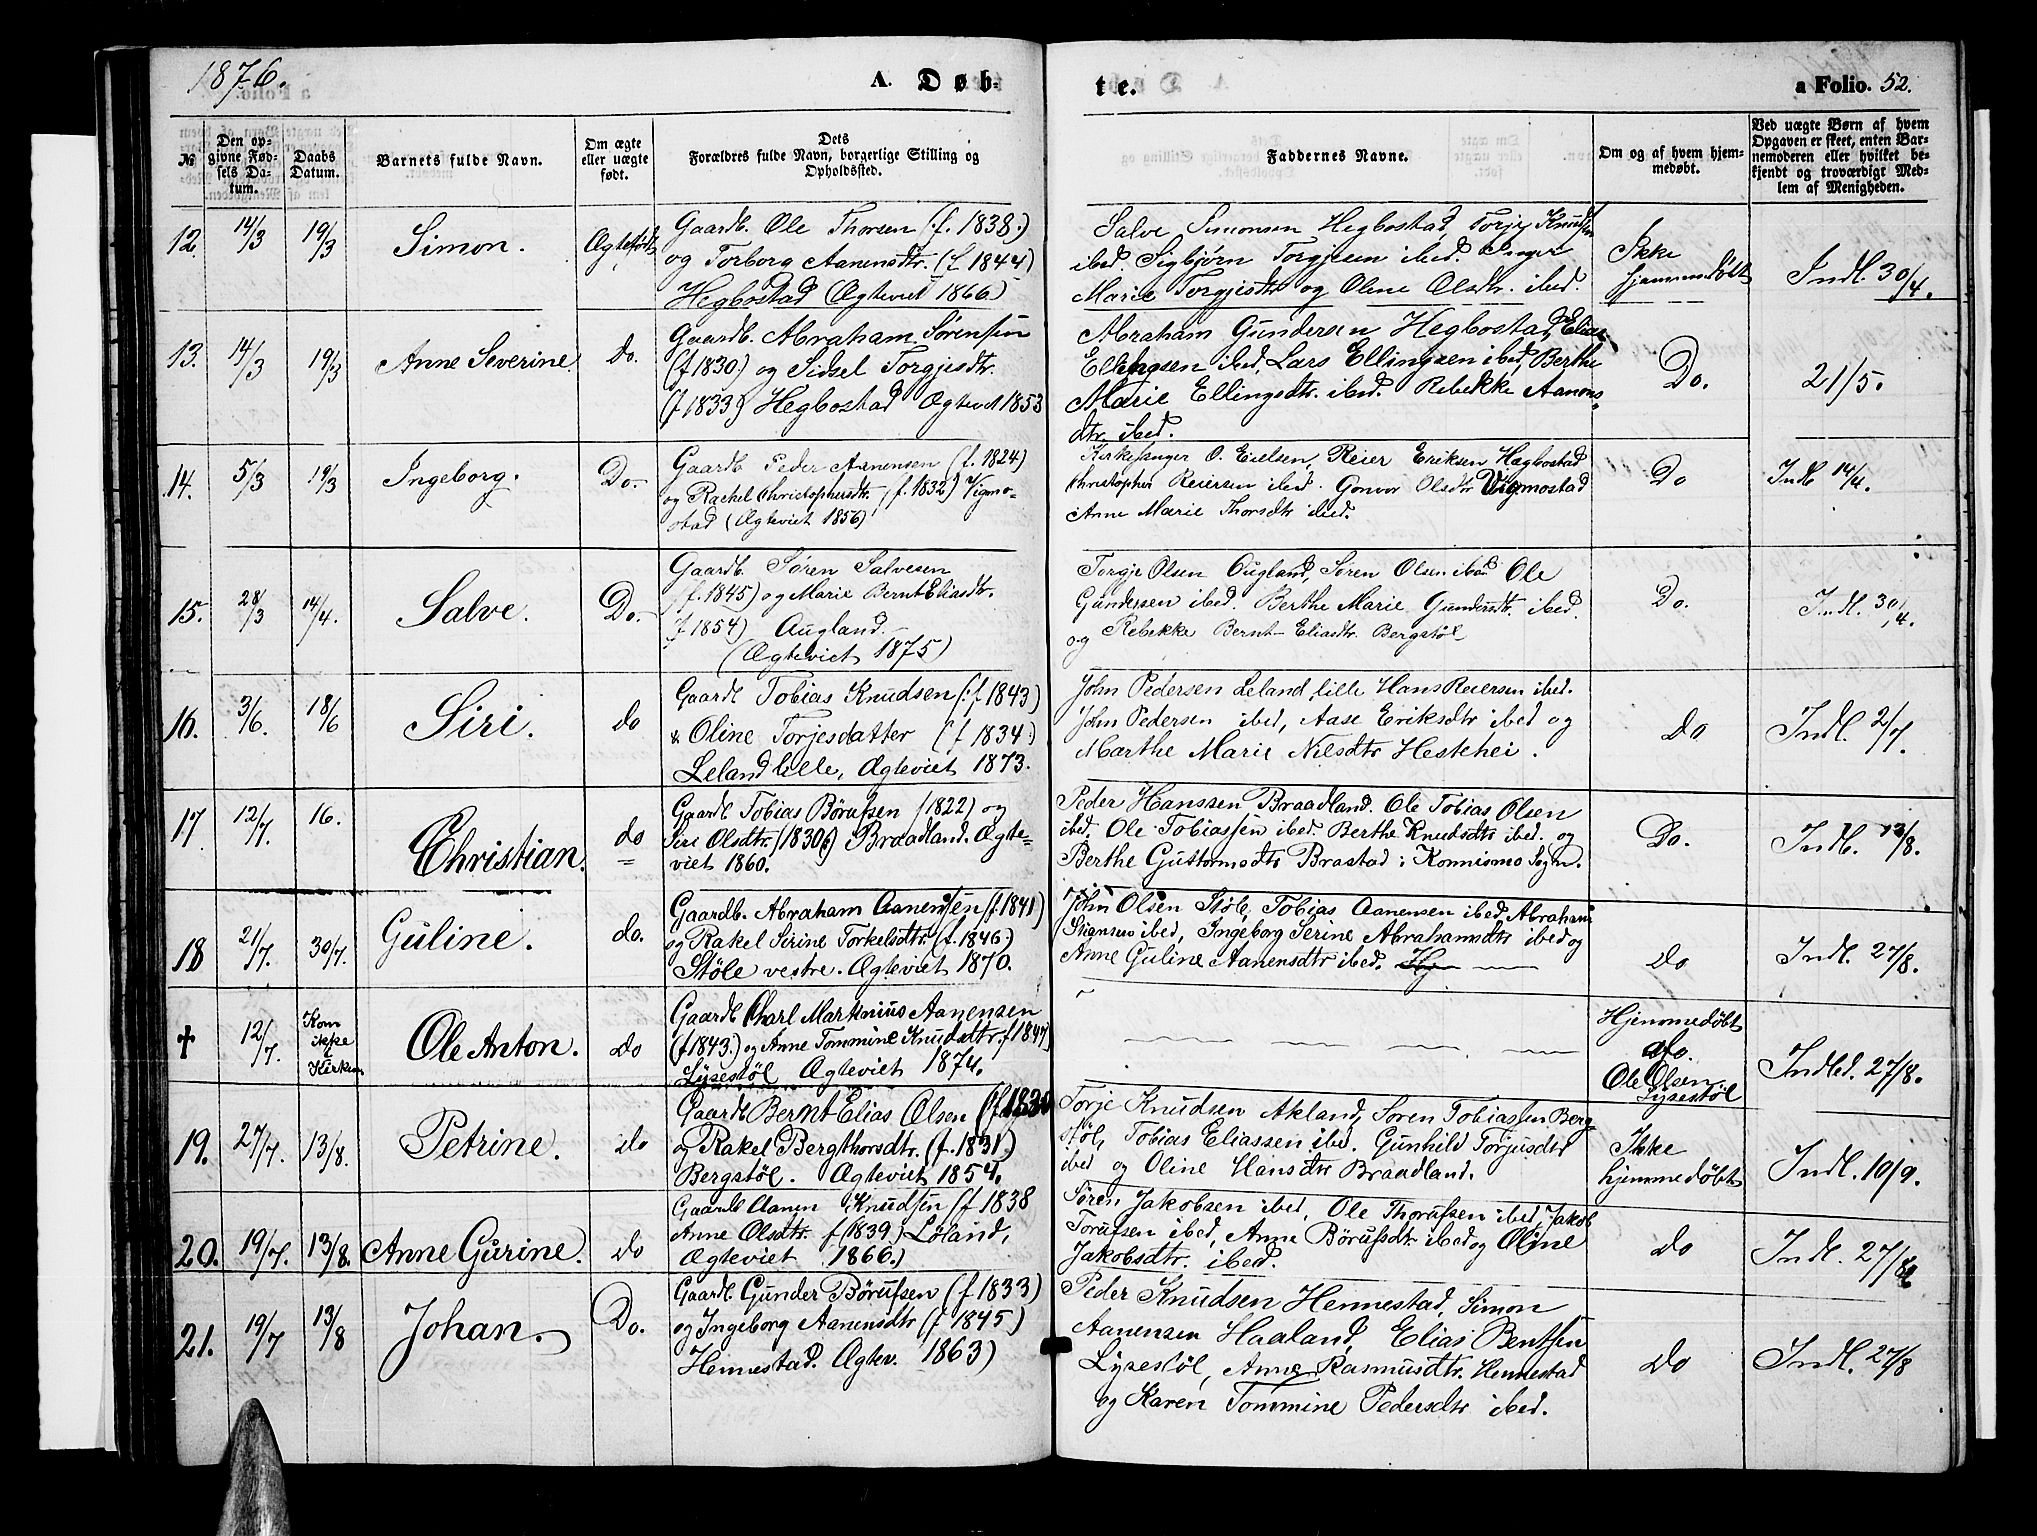 1876.
A. Døb-
te.
a Folio. 52.
№
Den op-
givne Fød-
sels Da-
tum.
Daabs
Datum.
Barnets fulde Navn.
Om ægte
eller uægte
født.
Dets
Forældres fulde Navn, borgerlige Stilling og
Opholdssted.
Faddernes Navne.
Om og af hvem hjem-
medøbt.
Ved uægte Børn af hvem
Opgaven er skeet, enten Bar-
nemoderen eller hvilket be-
kjendt og troværdigt Med-
lem af Menigheden.
12. 14/3 19/3 Simon. Ægtefødt
Gaardb. Ole Thorsen (f. 1838.)
og Torborg Aanensdtr. (f. 1844)
Hegbostad (Ægteviet 1866)
Salve Simonsen Hegbostad, Torje Knudsen
ibed. Sigbjörn Torgjesen ibed. Inger
Marie Torgjisdtr og Oline Olsdtr. ibed.
Ikke
hjemmedöbt
Indl. 30/4.
13. 14/3 19/3 Anne Severine. Do.
Gaardb. Abraham Sörensen
(f 1830.) og Sidsel Torgjesdtr.
(f. 1833.) Hegbostad Ægteviet 1853
Abraham Gundersen Hegbostad, Elias
Ellingsen ibed, Lars Ellingsen ibed, Berthe
Marie Ellingsdtr. ibed. Rebekke Aanons-
dtr. ibed.
Do.
21/5.
14. 5/3 19/3 Ingeborg. Do.
Gaardb. Peder Aanensen (f. 1824)
og Rachel Christophersdtr. (f. 1832) Vigmo-
stad (Ægteviet 1856)
Kirkesanger O. Eielsen, Reier Eriksen Hægbostad
Christopher Reiersen ibed. Gonvor Olsdtr Vigmostad
Anne Marie Thorsdtr ibed.
Do
Indl 14/4.
15. 28/3 14/4. Salve. Do.
Gaardb. Sören Salvesen
(f. 1845) og Marie Bernt Eliasdtr.
f 1854) Augland.
(Ægteviet 1875)
Torgje Olsen Ougland, Sören Olsen ibed Ole
Gundersen ibed. Berthe Marie Gundersdtr. ibed.
og Rebekke Bernt-Eliasdtr. Bergstöl
Do.
Indl. 30/4.
16. 3/6. 18/6 Siri. do
Gaardb Tobias Knudsen (f. 1843)
& Oline Torjesdatter (f 1834.)
Leland lille, Ægteviet 1873.
John Pedersen Leland lille Hans Reiersen ibed.
John Pedersen ibed, Aase Eriksdtr ibed og
Marthe Marie Nilsdtr Hestehei.
Do
Indl. 2/7.
17. 12/7. 16. Christian. do
Gaardb Tobias Börufsen (1822) og
Siri Olsdtr. (1830) Braadland. Ægte-
viet 1860.
Peder Hanssen Braadland. Ole Tobias Olsen
ibed. Ole Tobiassen ibed. Berthe Knudsdtr ibed. og
Berthe Guttormsdtr Brastad i Konnismo Sogn.
Do.
Indl. 13/8.
18 21/7. 30/7. Guline. do.
Gaardb. Abraham Aanensen (f. 1841)
og Rakel Sirine Torkelsdtr. (f. 1846)
Støle vestre. Ægteviet 1870.
John Olsen Støle, Tobias Aanensen ibed, Abraham
ibed, Ingeborg Serine Abrahamsdtr ibed og
Anne Guline Aanensdtr ibed. Hj
do
Indl. 27/8.
† 12/7. Kom
ikke
i
Kirken Ole Anton. do
Gaardb Charl Martinius Aanensen
(f 1843.) og Anne Tommine Knudsdtr. f 1847)
Lysestöl Ægteviet 1874.
Hjemmedöbt
af
Ole Olsen
Lysestöl
Indled. 27/8.
19. 27/7. 13/8. Petrine. do
Gaardb Bernt Elias Olsen (f. 1830
og Rakel Bergthorsdtr. (f. 1831.)
Bergstöl. Ægteviet 1854.
Torje Knudsen Akland, Sören Tobiassen Berg-
støl, Tobias Eliassen ibed. Gunhild Torjusdtr
ibed og Oline Hansdtr Braadland.
Ikke
hjemmedøbt
Indl. 10/9.
20. 19/7. 13/8. Anne Gurine. do
Gaardb Aanen Knudsen (f 1838
Anne Olsdtr. f (1839) Löland,
Ægteviet 1866.)
Søren Jakobsen ibed, Ole Thorufsen ibed, Jakob
Torufsen ibed, Anne Börufsdtr ibed og Oline
Jakobsdtr. ibed.
do
Indl. 27/8
21. 19/7 13/8 Johan. Do.
Gaardb. Gunder Börufsen (f 1833)
og Ingeborg Aanensdtr (f 1845)
Hennestad. Ægtev. 1863)
Peder Knudsen Hennestad, Simon
Aanensen Haaland, Elias Bentsen
Lysestöl, Anne Rasmusdtr. Hennestad
og Karen Tommine Pedersdtr ibed.
do
Indl. 27/8